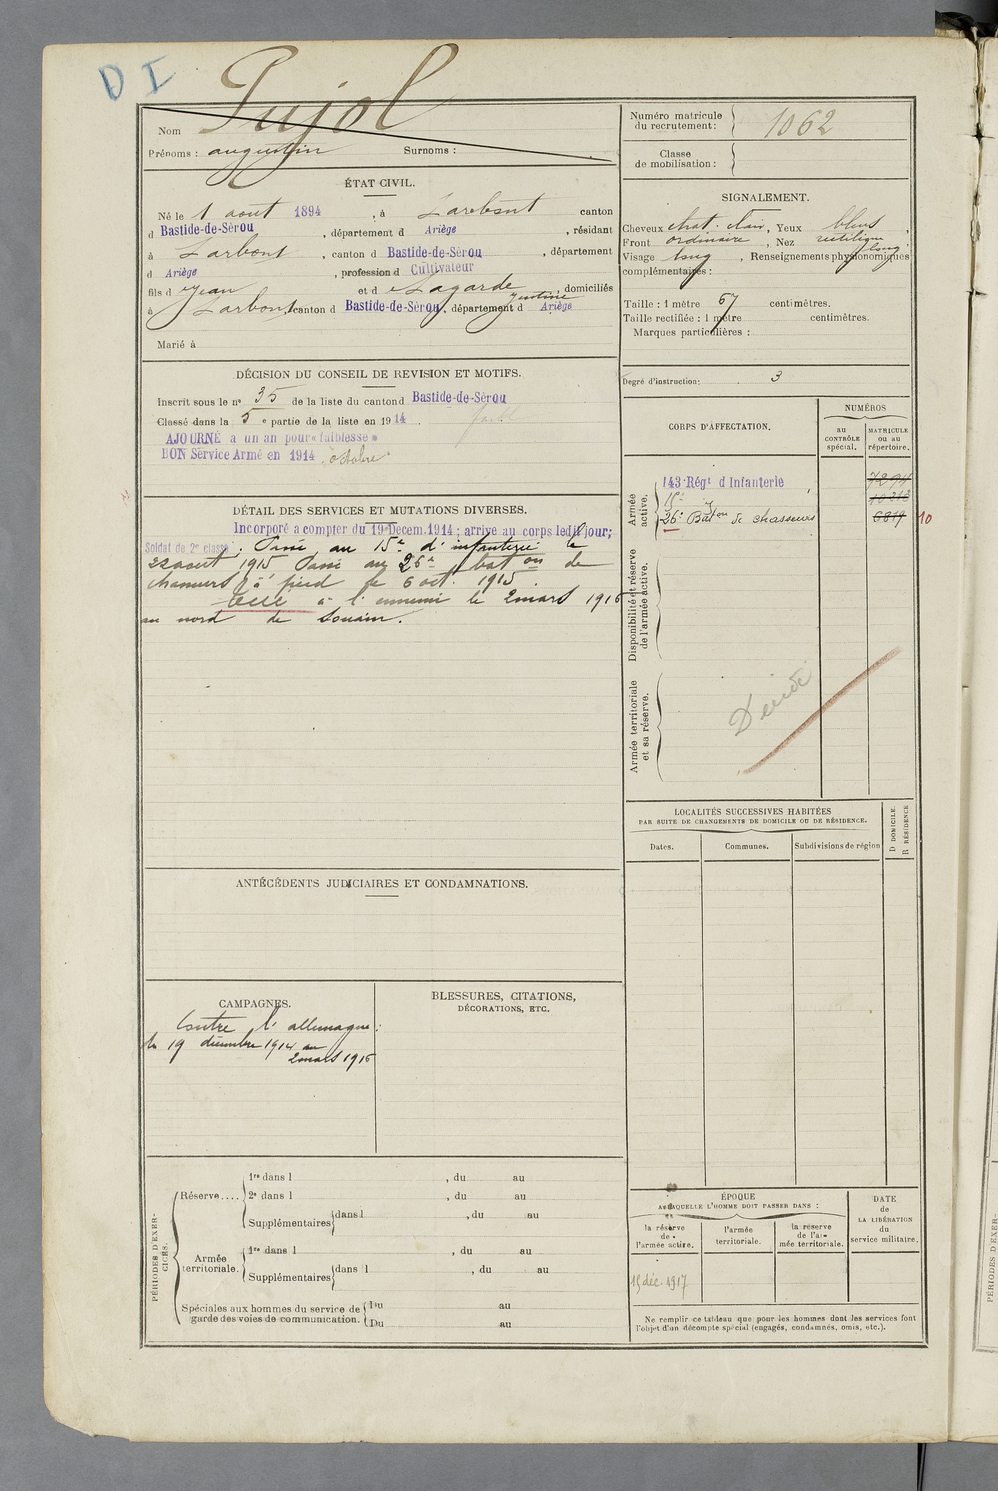 D I
Nom Pujol
Prénoms : augustin Surnoms :
Numéro matricule du recrutement : 1062
Classe de mobilisation :
ÉTAT CIVIL.
Né le 1 aout 1894, à Larbont canton
d Bastide-de-Sérou, département d Ariège, résidant
à Larbont, canton d Bastide-de-Sérou, département
d Ariège, profession d Cultivateur
fils d Jean et d Lagarde Justine, domiciliés
à Larbont, canton d Bastide-de-Sérou, département d Ariège
Marié à
SIGNALEMENT.
Cheveux chat. clair, Yeux bleus,
Front ordinaire, Nez rectiligne long
Visage long, Renseignements physionomiques
complémentaires :
Taille : 1 mètre 67 centimètres.
Taille rectifiée : 1 mètre centimètres.
Marques particulières :
Degré d'instruction: 3
DÉCISION DU CONSEIL DE REVISION ET MOTIFS.
Inscrit sous le nº 35 de la liste du canton d Bastide-de-Sérou
Classé dans la 5 e partie de la liste en 1914.
AJOURNÉ à un an pour « faiblesse »
BON Service Armé en 1914 octobre
CORPS D'AFFECTATION.
NUMÉROS
AU CONTRÔLE spécial.
MATRICULE ou au répertoire.
Armée active.
143e Régt d'Infanterie
15e
26e Baton de chasseurs 6819 10
Disponibilité et réserve de l'armée active.
Armée territoriale et sa réserve.
DÉTAIL DES SERVICES ET MUTATIONS DIVERSES.
Incorporé a compter du 19 Decem. 1914 ; arrive au corps ledit jour;
Soldat de 2e classe. Passé au 15e d'infanterie le
22 aout 1915 Passé au 26e baton de
chasseurs à pied le 6 oct. 1915.
Tué à l'ennemi le 2 mars 1916
au nord de Souain.
LOCALITÉS SUCCESSIVES HABITÉES
PAR SUITE DE CHANGEMENTS DE DOMICILE OU DE RÉSIDENCE.
Dates.
Communes.
Subdivisions de région
D DOMICILE
R RÉSIDENCE
ANTÉCÉDENTS JUDICIAIRES ET CONDAMNATIONS.
CAMPAGNES.
Contre l'allemagne :
du 19 décembre 1914 au
2 mars 1916
BLESSURES, CITATIONS,
DÉCORATIONS, ETC.
PÉRIODES D'EXERCICES.
Réserve....
1re dans l , du au
2e dans l , du au
Supplémentaires dans l , du au
Armée territoriale.
1re dans l , du au
Supplémentaires dans l , du au
Spéciales aux hommes du service de garde des voies de communication.
Du au
Du au
ÉPOQUE
A LAQUELLE L'HOMME DOIT PASSER DANS :
la réserve de l'armée active.
l'armée territoriale.
la réserve de l'armée territoriale.
DATE de LA LIBÉRATION du service militaire.
15 déc. 1917
Ne remplir ce tableau que pour les hommes dont les services font
l'objet d'un décompte spécial (engagés, condamnés, omis, etc.).
PÉRIODES D'EXER-